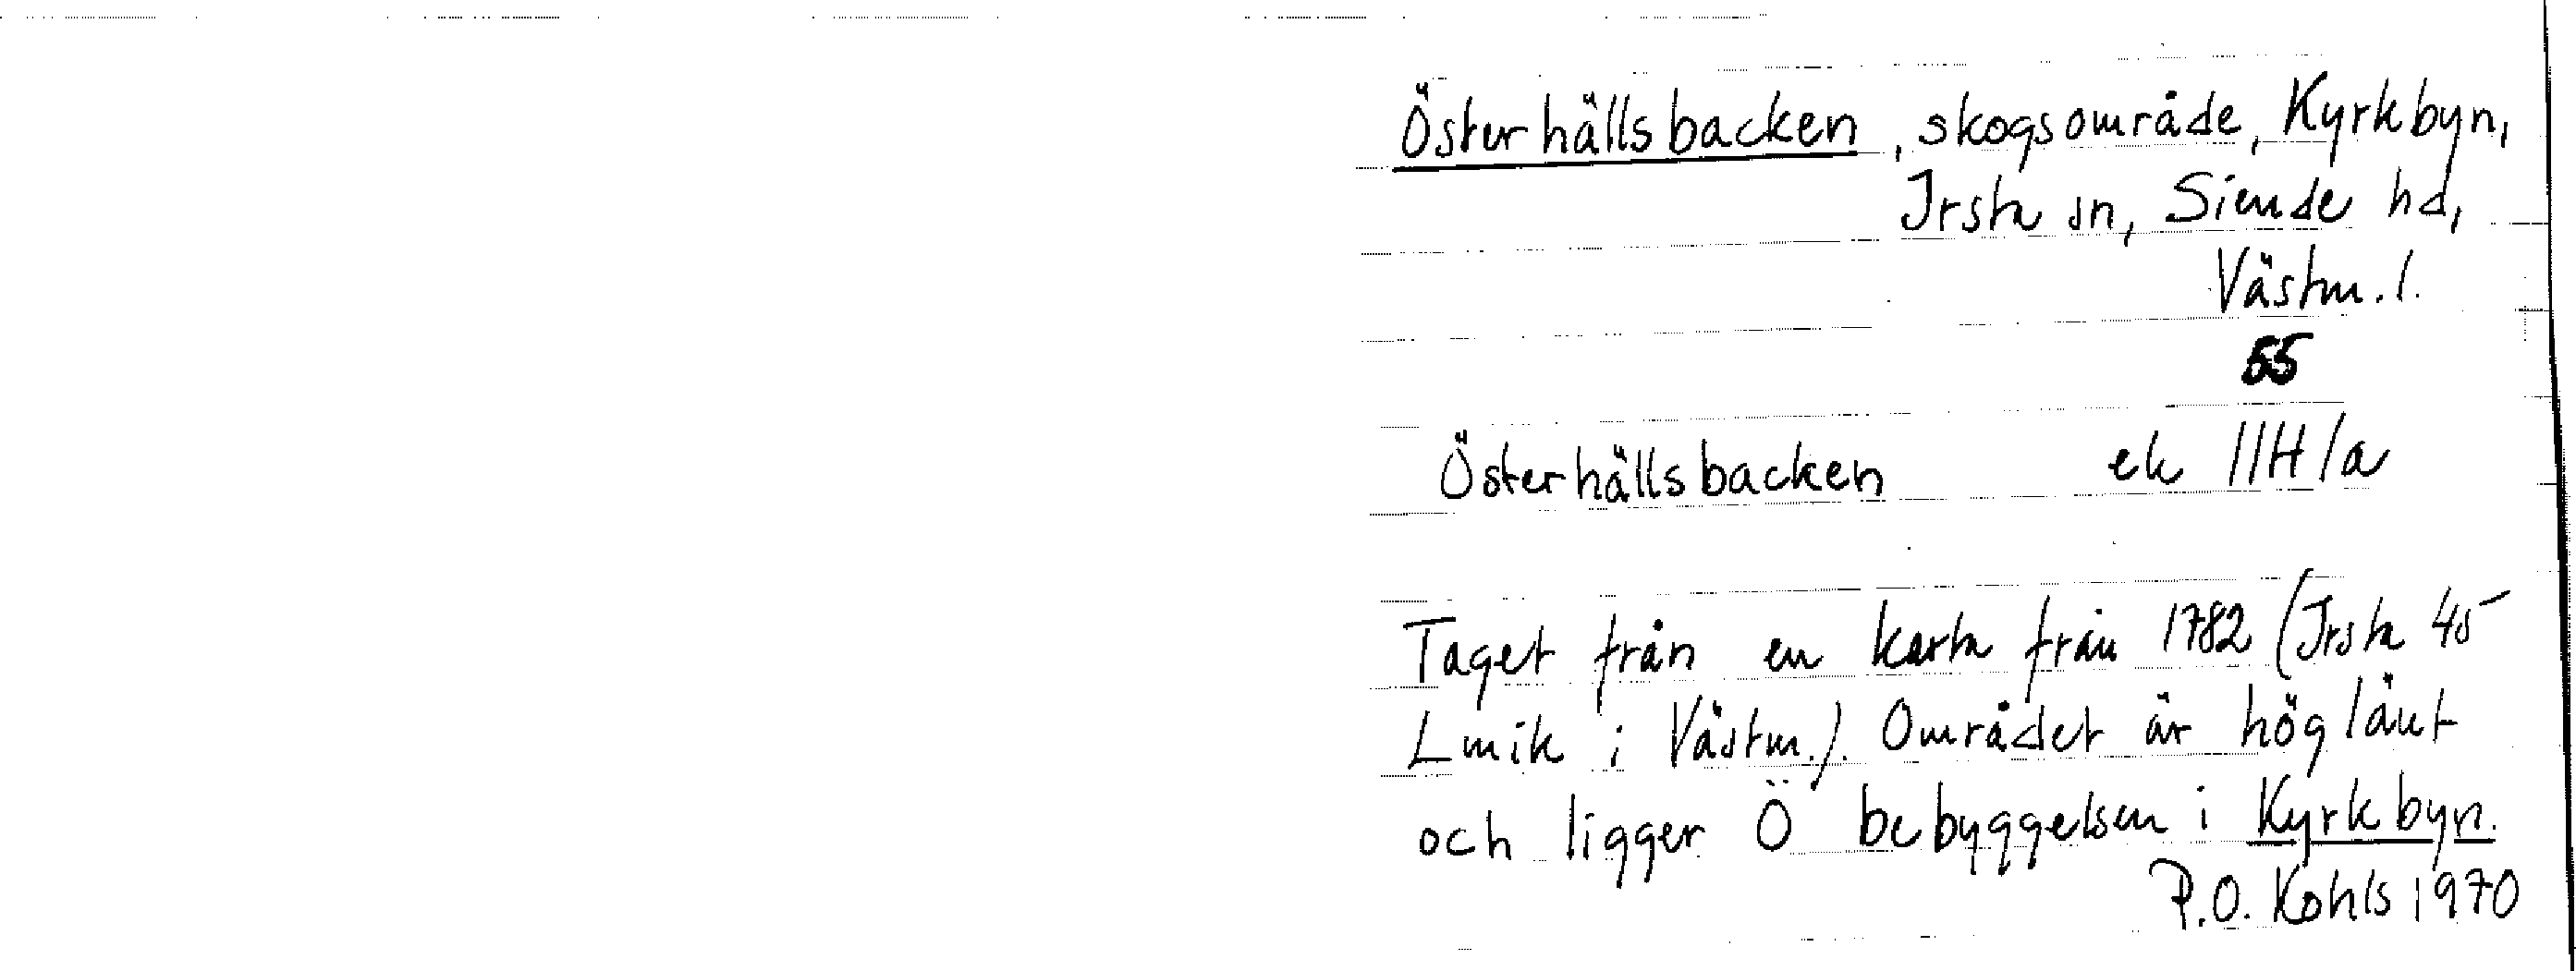 Österhällsbacken, skogsområde, Kyrkbyn,
Irsta sn, Siende hd,
Västm. l.
55
Österhällsbacken ek 11H/a
Taget från en karta från 1782 (Irsta 45
Lmik i Västm.). Området är höglänt
och ligger Ö bebyggelsen i Kyrkbyn.
P.O. Kohls 1970